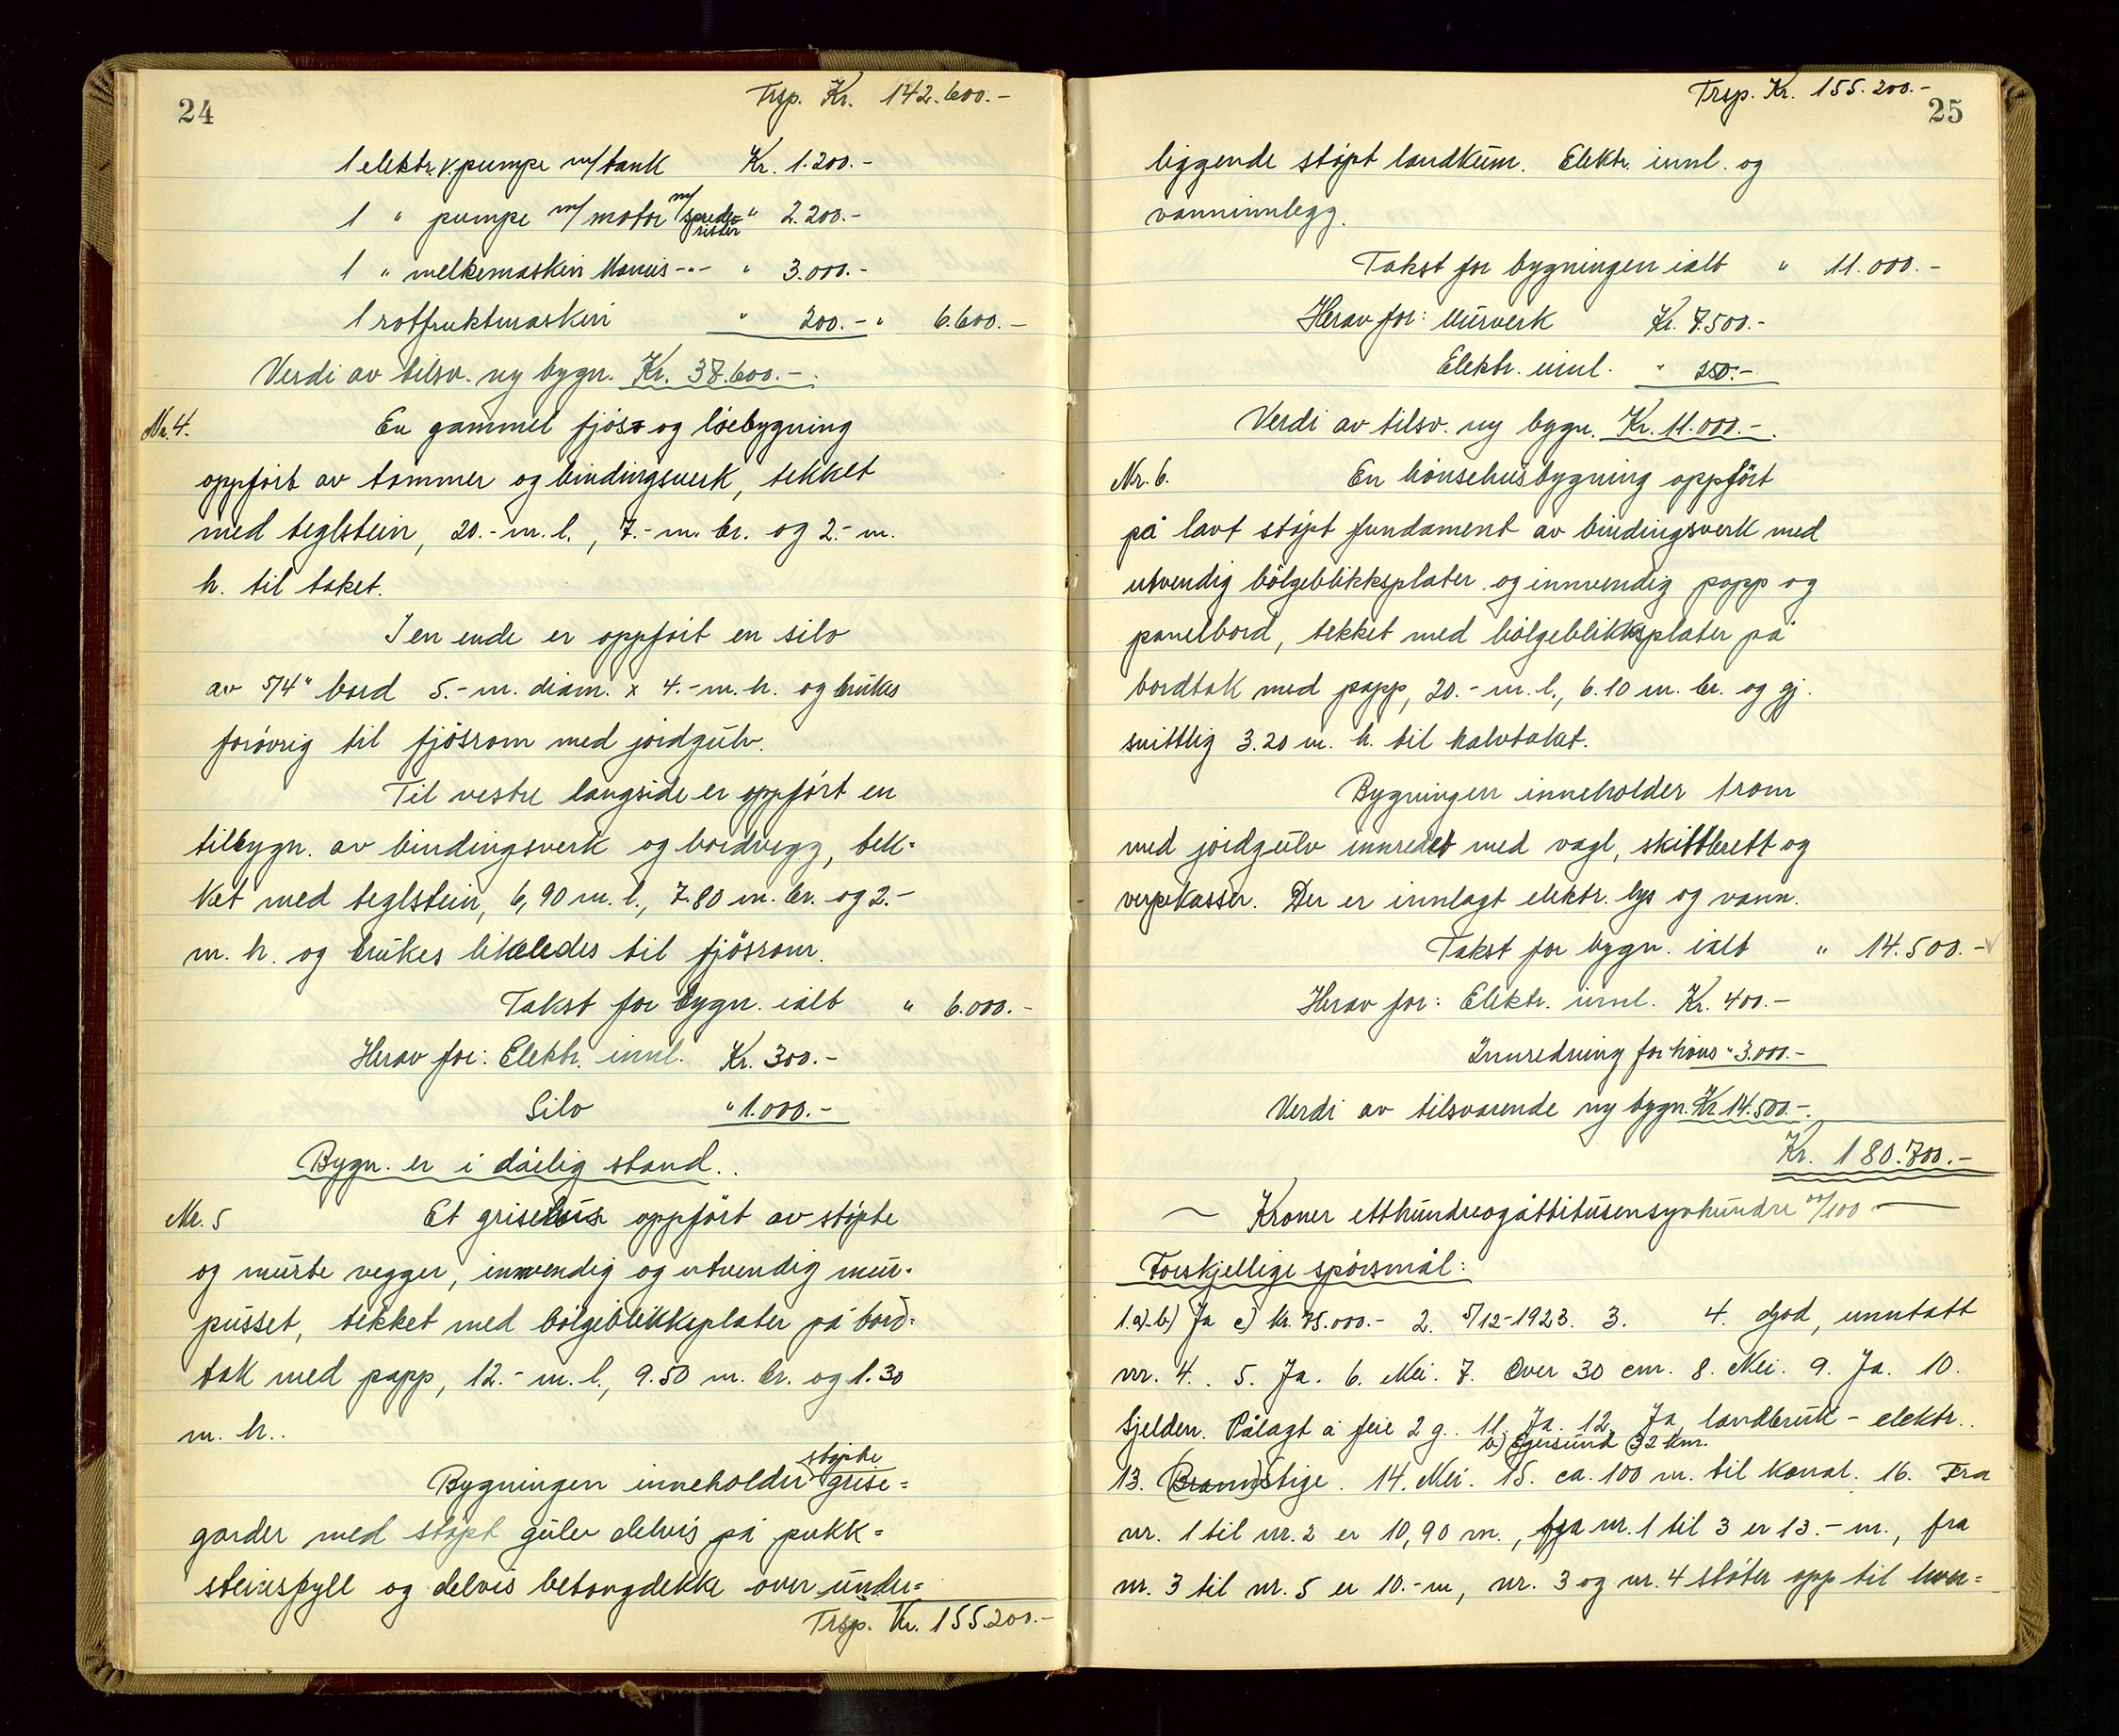 24
Trsp. Kr. 142.600.-
1 elektr. v.pumpe m/tank Kr. 1.200.-
1 " pumpe m/motor m/spreder " 2.200.-
rister
1 " melkemaskin Manus -"- " 3.000.-
1 rotfruktmaskin " 200.- " 6.600.-
Verdi av tilsv. ny bygn. Kr. 38.600.-.
Nr. 4. En gammel fjøs- og løebygning
oppført av tømmer og bindingsverk, tekket
med teglstein, 20.- m. l., 7.- m. br. og 2.- m.
h. til taket.
I en ende er oppført en silo
av 5/4" bord 5.- m. diam. x 4.- m. h. og brukes
forøvrig til fjøsrom med jordgulv.
Til vestre langside er oppført en
tilbygn. av bindingsverk og bordvegg, tek-
ket med teglstein, 6,90 m. l., 7.80 m. br. og 2.-
m. h. og brukes likeledes til fjøsrom.
Takst for bygn. ialt " 6.000.-
Herav for: Elektr. innl. Kr. 300.-
Silo " 1.000.-
Bygn. er i dårlig stand..
Nr. 5 Et grisehus oppført av støpte
og murte vegger, innvendig og utvendig mur-
pusset, tekket med bølgeblikkplater på bord-
tak med papp, 12.- m. l., 9.50 m. br. og 1.30
m. h..
støpte
Bygningen inneholder grise-
garder med støpt gulv delvis på pukk-
steinsfyll og delvis betongdekke over under-
Trsp. Kr. 155.200.-
Trsp. Kr. 155.200.-
25
liggende støpt landkum. Elektr. innl. og
vanninnlegg.
Takst for bygningen ialt " 11.000.-
Herav for: Murverk Kr. 7.500.-
Elektr. innl. " 250.-
Verdi av tilsv. ny bygn. Kr. 11.000.-.
Nr. 6. En hønsehusbygning oppført
på lavt støpt fundament av bindingsverk med
utvendig bølgeblikksplater og innvendig papp og
panelbord, tekket med bølgeblikksplater på
bordtak med papp, 20.- m. l., 6.10 m. br. og gj.
snittlig 3.20 m. h. til halvtaket.
Bygningen inneholder 1 rom
med jordgulv innredet med vagl, skittbrett og
verpekasser. Der er innlagt elektr. lys og vann.
Takst for bygn. ialt " 14.500.-
Herav for: Elektr. innl. Kr. 400.-
Innredning for høns " 3.000.-
Verdi av tilsvarende ny bygn. Kr. 14.500.-.
Kr. 180.700.-
Kroner etthundreogåttitusensyvhundre 00/100
Forskjellige spørsmål:
1.a)-b) Ja c) kr. 75.000.- 2. 5/12-1923. 3. 4. God, unntatt
nr. 4.. 5. Ja. 6. Nei. 7. Over 30 cm. 8. Nei. 9. Ja. 10.
Sjelden. Pålagt å feie 2 g.. 11. Ja. 12. Ja, landbruk - elektr..
b) Egersund 32 km.
13. (Brann)Stige. 14. Nei. 15. ca. 100 m. til kanal. 16. Fra
nr. 1 til nr. 2 er 10,90 m., fra nr. 1 til 3 er 13.- m., fra
nr. 3 til nr. 5 er 10.- m, nr. 3 og nr. 4 støter opp til hver-